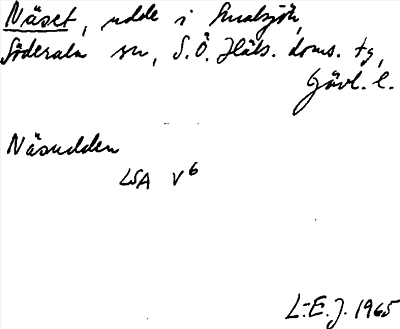 Näset, udde i Snatsjön,
Söderala sn, S.Ö. Häls. doms. tg,
Gävl. l.
Näsudden
LSA V6
L-E. J. 1965